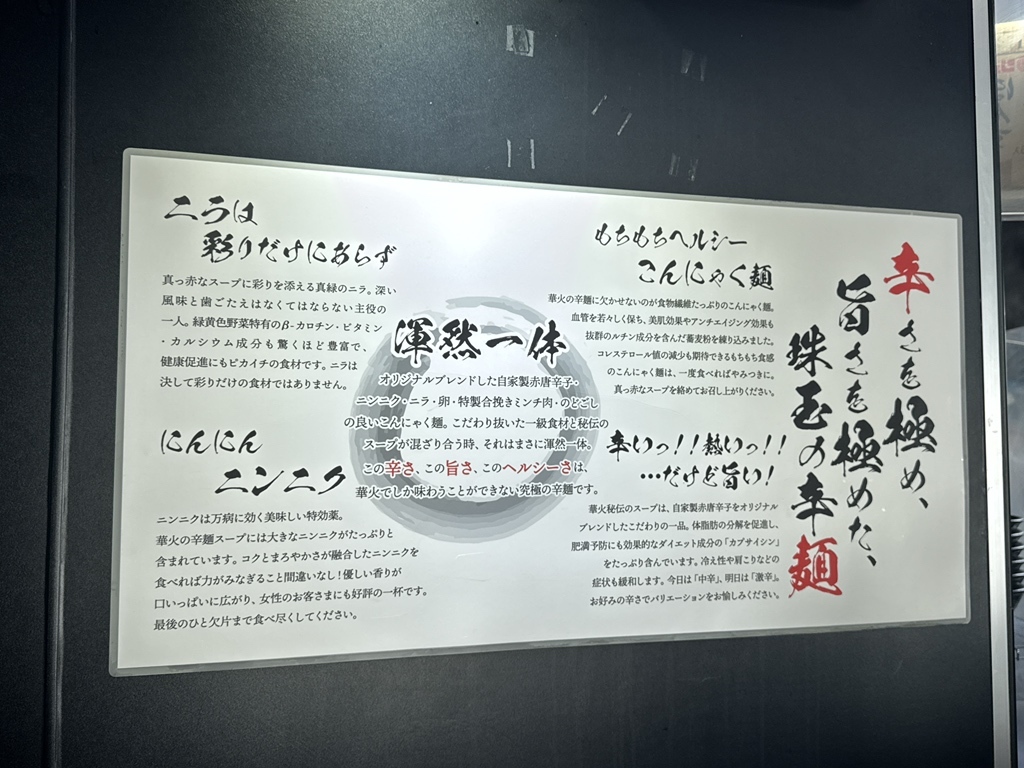 辛さを極め、
旨さを極めた、
珠玉の辛麺
ニラは
彩りだけにあらず
真っ赤なスープに彩りを添える真緑のニラ。深い
風味と歯ごたえはなくてはならない主役の
一人。緑黄色野菜特有のβ-カロチン・ビタミン
・カルシウム成分も驚くほど豊富で、
健康促進にもピカイチの食材です。ニラは
決して彩りだけの食材ではありません。
にんにん
ニンニク
ニンニクは万病に効く美味しい特効薬。
華火の辛麺スープには大きなニンニクがたっぷりと
含まれています。コクとまろやかさが融合したニンニクを
食べれば力がみなぎること間違いなし!優しい香りが
口いっぱいに広がり、女性のお客さまにも好評の一杯です。
最後のひと欠片まで食べ尽くしてください。
渾然一体
オリジナルブレンドした自家製赤唐辛子・
ニンニク・ニラ・卵・特製合挽きミンチ肉・のどごし
の良いこんにゃく麺。こだわり抜いた一級食材と秘伝の
スープが混ざり合う時、それはまさに渾然一体。
この辛さ、この旨さ、このヘルシーさは、
華火でしか味わうことができない究極の辛麺です。
もちもちヘルシー
こんにゃく麺
華火の辛麺に欠かせないのが食物繊維たっぷりのこんにゃく麺。
血管を若々しく保ち、美肌効果やアンチエイジング効果も
抜群のルチン成分を含んだ蕎麦粉を練り込みました。
コレステロール値の減少も期待できるもちもち食感
のこんにゃく麺は、一度食べればやみつきに。
真っ赤なスープを絡めてお召し上がりください。
辛いっ!!熱いっ!!
…だけど旨い!
華火秘伝のスープは、自家製赤唐辛子をオリジナル
ブレンドしたこだわりの一品。体脂肪の分解を促進し、
肥満予防にも効果的なダイエット成分の「カプサイシン」
をたっぷり含んでいます。冷え性や肩こりなどの
症状も緩和します。今日は「中辛」、明日は「激辛」。
お好みの辛さでバリエーションをお愉しみください。